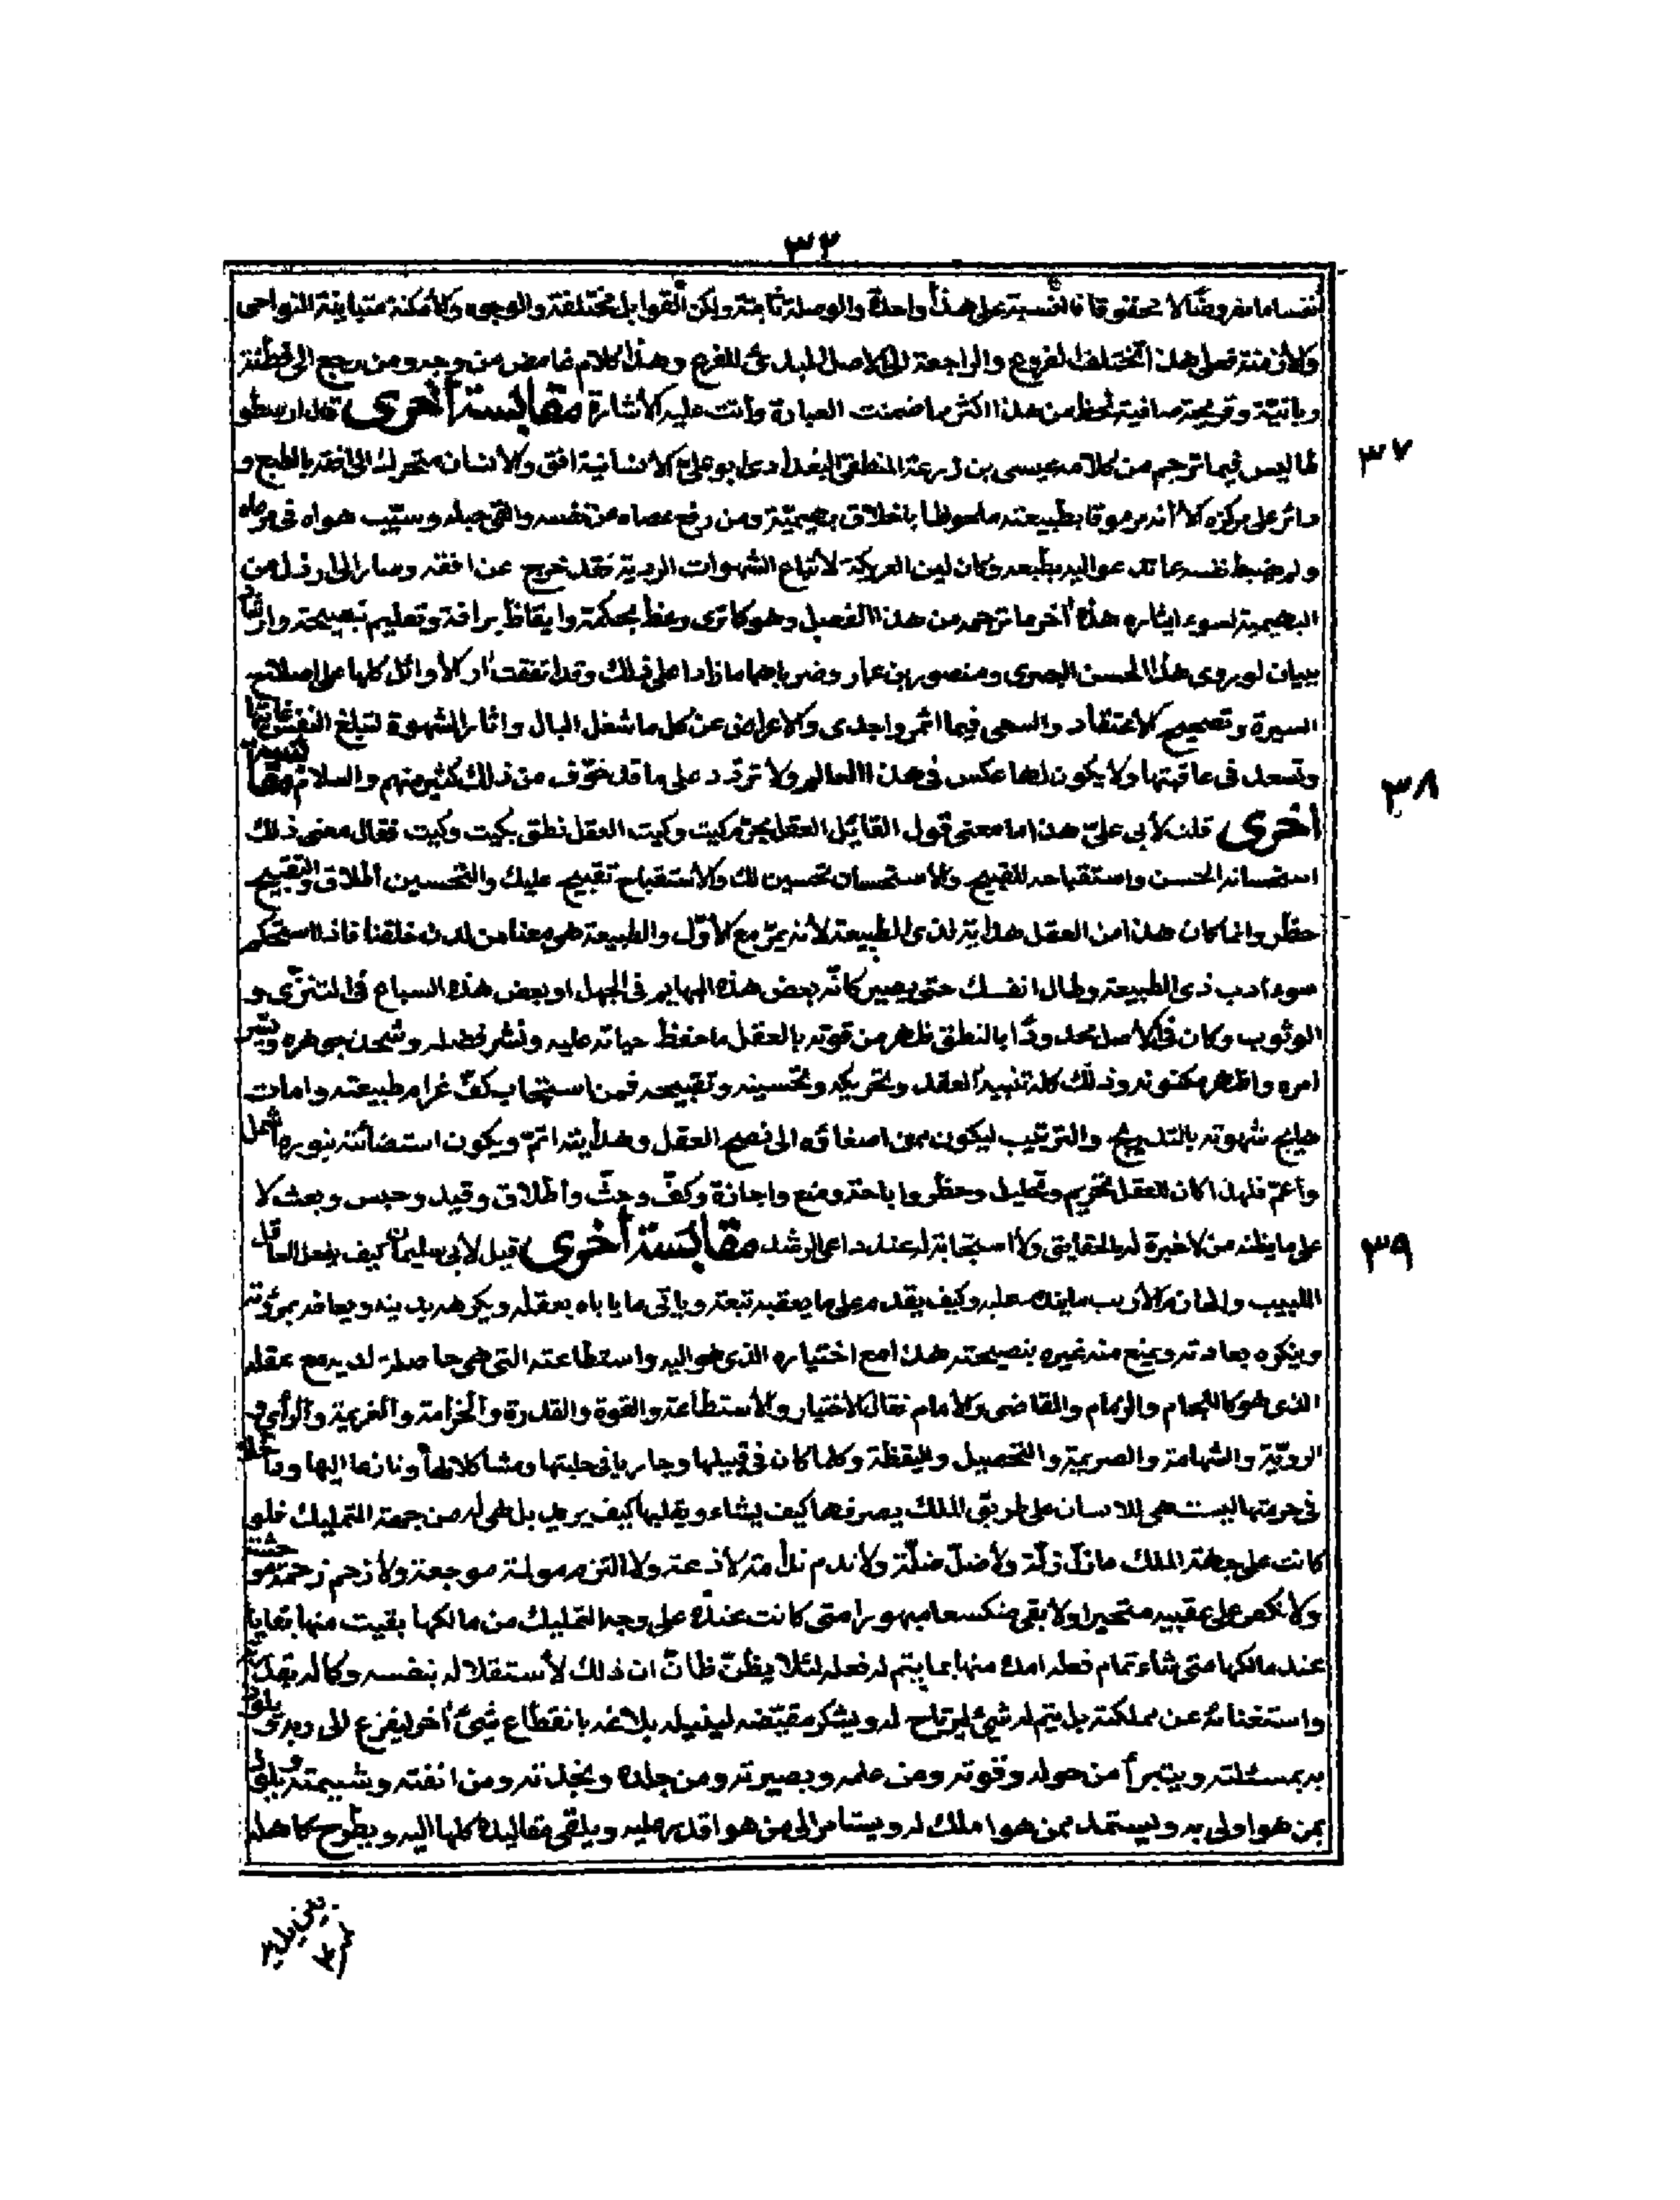 ٣٢
انقساما مفروضا لا محقوقا فالنسبة على هذا واحدة والوصلة ثابتة ولكن القوابل مختلفة والوجوه والأمكنة متباينة النواحى
والأزمنة فعلى هذا تختلف الفروع والراجعة الى الاصل المبدئ للفرع وهذا كلام غامض من وجه ومن رجع الى فطنة
وقريحة صافية لحظ من هذا اكثر مما ضمنت العبارة وأتت عليه الأشارة مقابسة أخرى قال ارسطو
طاليس فيما ترجم من كلامه عيسى بن زرعة المنطقى البغدادى ابو على الأنسانية افق والأنسان متحرك الى افقه بالطبع و
دائر على مركزه الا انه مرموقا بطبيعته ملحوظا باخلاق بهيميّة ومن رفع عصاه عن نفسه والقى حبله وسيّب هواه فى مرعاه
ولم يضبط نفسه عما تدعو اليه بطبعه وكان لين العريكة لأتباع الشهوات الردية فقد خرج عن افقه وصار الى ارذل من
البهيمية لسوء ايثاره هذا أخر ما ترجمه من هذا الفصل وهو كما ترى وعظ بحكمة وايقاظ برافة وتعليم بنصيحة وارشاد
ببيان لو روى هذا للحسن البصرى ومنصور بن عمار وضربائهما ما زادا على ذلك وقد اتفقت أراء الأوائل كلها على اصلاح
السيرة وتصحيح الأعتقاد والسعى فيما اثمر واجدى والأعراض عن كل ما شغل البال واثار الشهوة لتبلغ النفس غايتها
وتسعد فى عاقبتها ولا يكون لها عكس فى هذا العالم ولا تردد على ما قد خوّف من ذلك كثير منهم والسلام مقابسة
أخرى قلت لأبى علىّ هذا ما معنى قول القائل العقل يحرّم كيت وكيت العقل نطق بكيت وكيت فقال معنى ذلك
استحسانه الحسن واستقباحه للقبيح والأستحسان تحسين لك والأستقباح تقبيح عليك والتحسين اطلاق والتقبيح
حظر وانما كان هذا من العقل هداية لذى الطبيعة لأنه يمرّ مع الأوّل والطبيعة هى معنا من لدن خلقنا فاذا استحكم
سوء ادب ذى الطبيعة وطال انفسك حتى يصير كأنّه بعض هذه البهايم فى الجهل او بعض هذه السباع فى التنزّى و
الوثوب وكان فى الأصل محدودًا بالنطق ظهر من قوته بالعقل ما حفظ حياته عليه ونشر فضله وشحذ جوهره
امره واظهر مكنونه وذلك كله تنبيه العقل وتحريكه وتحسينه وتقبيحه فمن استجاب كفّ غرام طبيعته وامات
هايج شهوته بالتدريج والترتيب ليكون ممن اصغاؤه الى نصح العقل وهدايته اتمّ ويكون استضائته بنوره أشمل
وأعمّ فلهذا كان للعقل تحريم وتحليل وحظر واباحة ومنع واجازة وكفّ وحثّ واطلاق وقيد وحبس وبعث لا
على ما يظنه من لا خبرة له بالحقايق ولا استجابة له عند داعى الرشد مقابسة أخرى قيل لأبى سليمان كيف يفعل العاقل
اللبيب والحازم الأريب ما يندم عليه وكيف يقدم على ما يعقبه تبعة ويأتى ما ياباه بعقله ويكرهه بدينه ويعافه بمروته
وينكره بعادته ويمنع منه غيره بنصيحته هذا مع اختياره الذى هو اليه واستطاعته التى هى حاصلة لديه مع عقله
الذى هو كاللجام والزمام والقاضى والأمام فقال الأختيار والأستطاعة والقوة والقدرة والحزامة والعزيمة والرأى و
الرويّة والشهامة والصريمة والتحصيل واليقظة وكلما كان فى قبيلها وجاريا فى حلبتها ومشاكلا لها ونازعا اليها
فى حومتها ليست هى للانسان على طريق الملك يصرفها كيف يشاء ويقلبها كيف يريد بل هى له من جهة التمليك فلو
كانت على جهة الملك ما زلّ زلّة ولا ضلّ ضلّة ولا ندم ندامة لاذعة ولا التزم مولمة موجعة ولا زحم زحمة موحشة
ولا نكص على عقبيه متحيرا ولا بقى منكسعا مبهورا متى كانت عنده على وجه التمليك من مالكها بقيت منها بقايا
عند مالكها متى شاء تمام فعله امده منها بما يتم له فعله لئلا يظنّ ظانّ ان ذلك لأستقلاله بنفسه وكماله بقدرته
واستغنائه عن مملكته بل يتم له شئ ليرتاح له ويشكر مقيّضه لينيله بلاغه بانقطاع شئ أخر ليفزع الى
به بمسئلته ويتبرأ من حوله وقوته ومن علمه وبصيرته ومن جلده ونجدته ومن انفته وشيمته ويلوذ
بمن هو اولى به وليستمد ممن هو املك له ويستأسر الى من هو اقدر عليه ويلقى مقاليده كلها اليه ويطرح كاهله
٣٧
٣٨
٣٩
بين يديه